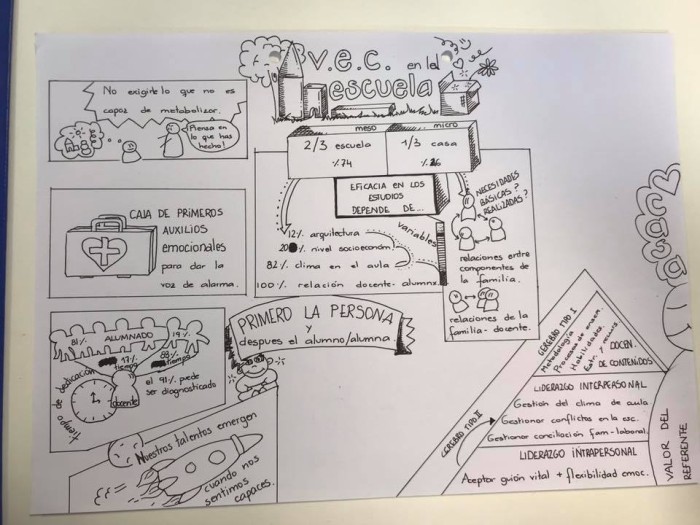 v.e.c. en la
escuela
No exigirle lo que no es
capaz de metabolizar.
Piensa en
lo que has
hecho!
meso
2/3 escuela
%74
micro
1/3 casa
%26
EFICACIA EN LOS
ESTUDIOS
DEPENDE DE...
variables
12% arquitectura
20% nivel socioeconóm.
82% clima en el aula
100% relación docente-alumno
NECESIDADES
BÁSICAS?
REALIZADAS?
relaciones entre
componentes de
la familia.
relaciones de la
familia-docente.
CAJA DE PRIMEROS
AUXILIOS
emocionales
para dar la
voz de alarma.
81% ALUMNADO 19%
17% tiempo
83% tiempo
docente
tiempo de dedicación
el 91% puede
ser diagnosticado
PRIMERO LA PERSONA
y
despues el alumno/alumna.
Nuestros talentos emergen
cuando nos
sentimos
capaces.
casa
CEREBRO TIPO I
Metodología
Procesos de enseñ.
Habilidades
Estr. y recurs.
DOCEN.
DE CONTENIDOS
CEREBRO TIPO II
LIDERAZGO INTERPERSONAL
Gestión del clima de aula
Gestionar conflictos en la esc.
Gestionar conciliación fam-laboral.
LIDERAZGO INTRAPERSONAL
Aceptar guión vital + flexibilidad emoc.
VALOR DEL
REFERENTE